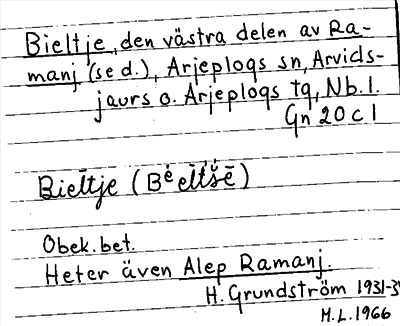 Bieltje, den västra delen av Ra-
manj (se d.), Arjeplogs sn, Arvids-
jaurs o. Arjeplogs tg, Nb. l.
Gn 20 c 1
Bieltje (Bėēl̄tšē)
Obek. bet.
Heter även Alep Ramanj.
H. Grundström 1931-3
M.L. 1966